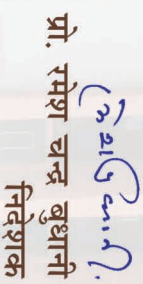 प्रो. रमेश चन्द्र बुधानी
निदेशक